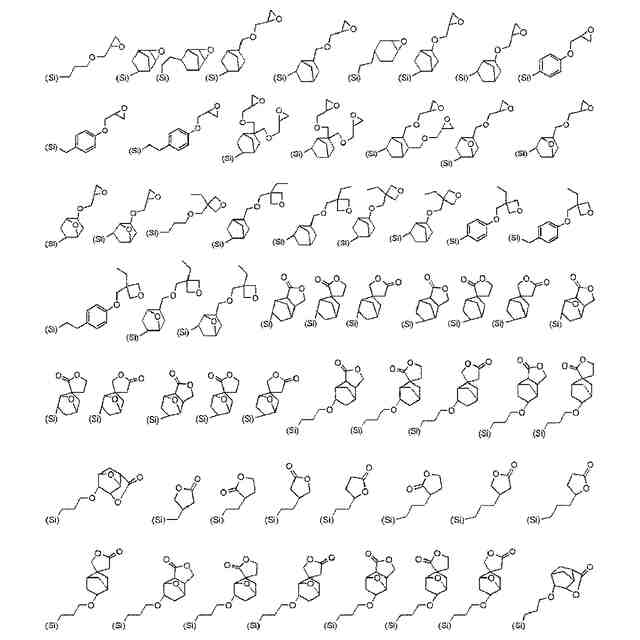 O O O O O O O O O O O O O O O
(Si) (Si) (Si) (Si) (Si) (Si) (Si) (Si) (Si)
O O O O O O O O O O O O O O O O O O O O O O
(Si) (Si) (Si) (Si) (Si) (Si) (Si)
O O O O O O O O O O O O O O O O O O O O
(Si) (Si) (Si) (Si) (Si) (Si) (Si) (Si) (Si)
O O O O O O O O O O O O O O O O O O O O O O O
(Si) (Si) (Si) (Si) (Si) (Si) (Si) (Si) (Si) (Si)
O O O O O O O O O O O O O O O O O O O O O O O O O O O O O O
(Si) (Si) (Si) (Si) (Si) (Si) (Si) (Si) (Si) (Si)
O O O O O O O O O O O O O O O O O O
(Si) (Si) (Si) (Si) (Si) (Si) (Si) (Si)
O O O O O O O O O O O O O O O O O O O O O O O O O O O O O O
(Si) (Si) (Si) (Si) (Si) (Si) (Si) (Si)